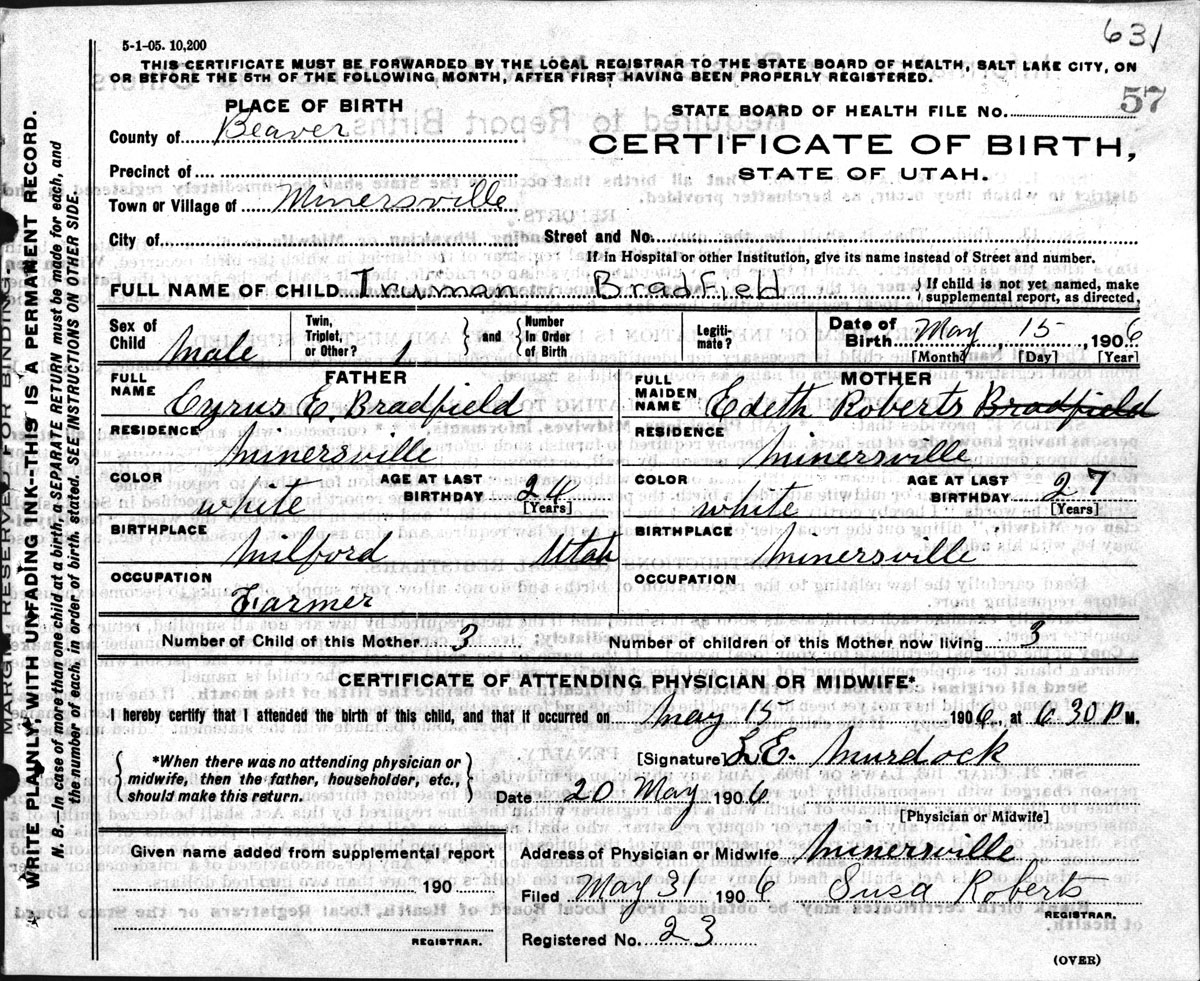 631
5-1-05. 10,200
THIS CERTIFICATE MUST BE FORWARDED BY THE LOCAL REGISTRAR TO THE STATE BOARD OF HEALTH, SALT LAKE CITY, ON
OR BEFORE THE 5TH OF THE FOLLOWING MONTH, AFTER FIRST HAVING BEEN PROPERLY REGISTERED.
PLACE OF BIRTH
STATE BOARD OF HEALTH FILE No. 57
County of Beaver
CERTIFICATE OF BIRTH,
Precinct of
STATE OF UTAH.
Town or Village of Minersville
City of Street and No.
If in Hospital or other Institution, give its name instead of Street and number.
FULL NAME OF CHILD Truman Bradfield { If child is not yet named, make
supplemental report, as directed,
Sex of Child Male Twin, Triplet, or Other? 1 } and { Number in Order of Birth Legiti- mate? Date of Birth May 15, 1906
[Month] [Day] [Year]
FATHER MOTHER
FULL NAME Cyrus E. Bradfield FULL MAIDEN NAME Edeth Roberts Bradfield
RESIDENCE Minersville RESIDENCE Minersville
COLOR white AGE AT LAST BIRTHDAY 24 [Years] COLOR white AGE AT LAST BIRTHDAY 27 [Years]
BIRTHPLACE Milford Utah BIRTHPLACE Minersville
OCCUPATION Farmer OCCUPATION
Number of Child of this Mother 3 Number of children of this Mother now living 3
CERTIFICATE OF ATTENDING PHYSICIAN OR MIDWIFE*
I hereby certify that I attended the birth of this child, and that it occurred on May 15 1906, at 6.30 P M.
{ *When there was no attending physician or
midwife, then the father, householder, etc.,
should make this return. }
[Signature] L.E. Murdock
Date 20 May 1906
[Physician or Midwife]
Given name added from supplemental report
190
REGISTRAR.
Address of Physician or Midwife Minersville
Filed May 31 1906 Susa Roberts
REGISTRAR.
Registered No. 23
(OVER)
MARGIN RESERVED FOR BINDING
WRITE PLAINLY, WITH UNFADING INK--THIS IS A PERMANENT RECORD.
N. B.—In case of more than one child at a birth, a SEPARATE RETURN must be made for each, and
the number of each, in order of birth, stated. SEE INSTRUCTIONS ON OTHER SIDE.